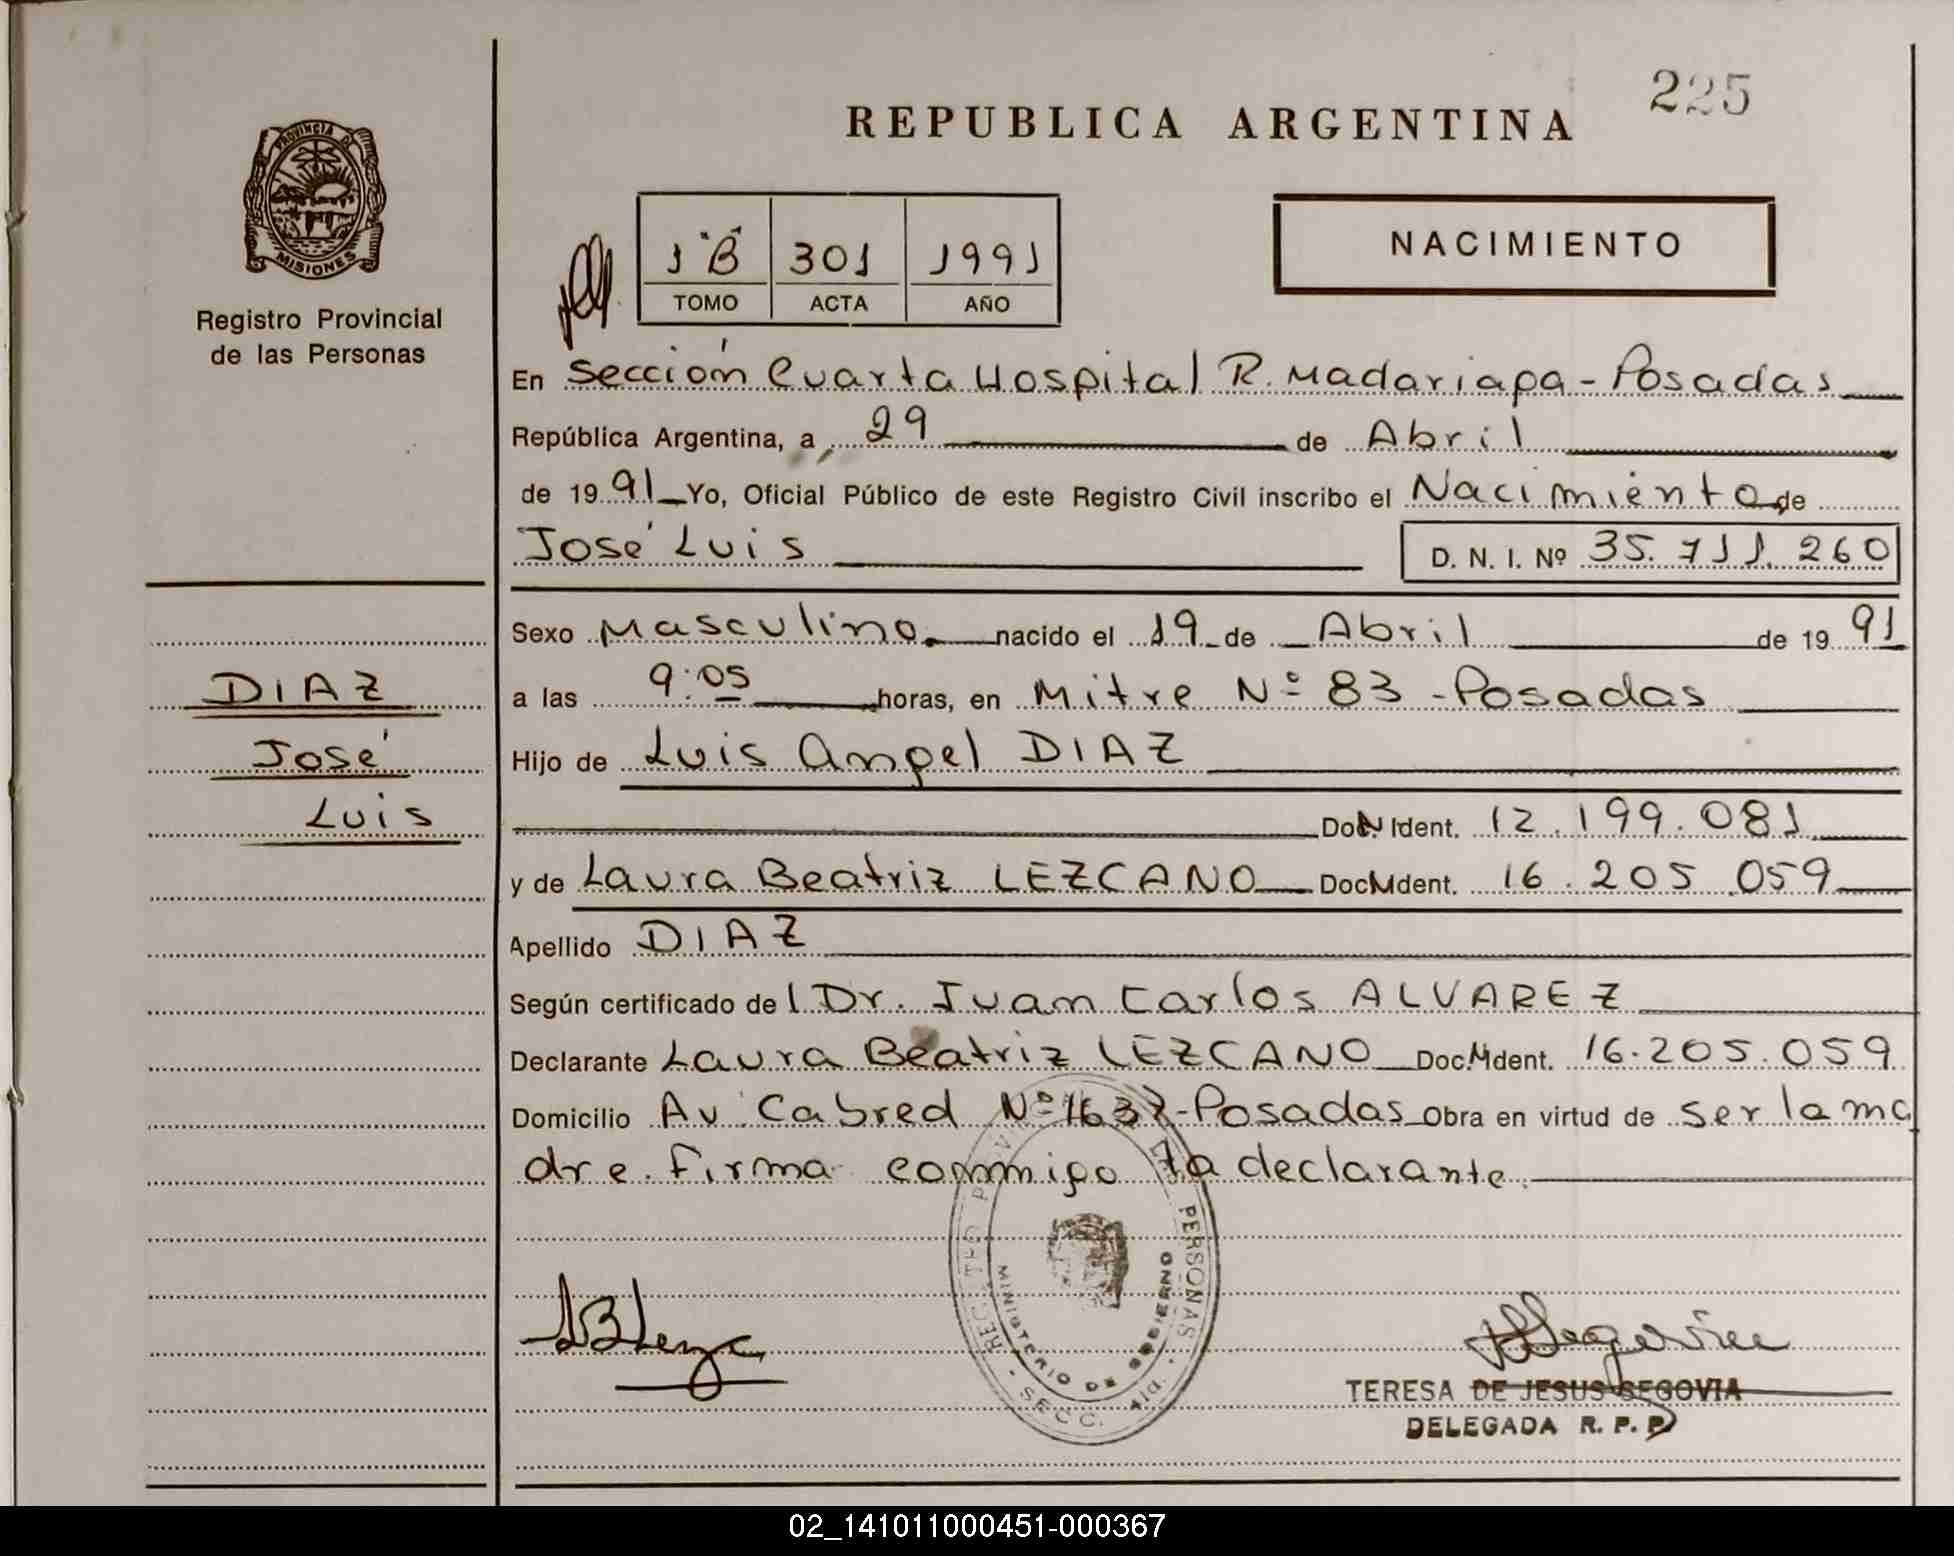 225
REPUBLICA ARGENTINA
PROVINCIA DE
MISIONES
Registro Provincial
de las Personas
1 "B" 301 1991
TOMO ACTA AÑO
NACIMIENTO
En Sección Cuarta Hospital R. Madariaga - Posadas
República Argentina, a 29 de Abril
de 1991 Yo, Oficial Público de este Registro Civil inscribo el Nacimiento de
José Luis D. N. I. Nº 35.711.260
Sexo Masculino. nacido el 19 de Abril de 1991
a las 9:05 horas, en Mitre Nº 83 - Posadas
Hijo de Luis Angel DIAZ
Doc. N Ident. 12.199.081
y de Laura Beatriz LEZCANO Doc. M Ident. 16.205.059
Apellido DIAZ
Según certificado del Dr. Juan Carlos ALVAREZ
Declarante Laura Beatriz LEZCANO Doc. M Ident. 16.205.059
Domicilio Av. Cabred Nº 1637 - Posadas Obra en virtud de ser la ma
dre. Firma conmigo la declarante.
DIAZ
José
Luis
PERSONAS
MINISTERIO DE GOBIERNO
SECC. 4ta.
TERESA DE JESUS SEGOVIA
DELEGADA R. P. P
02_141011000451-000367